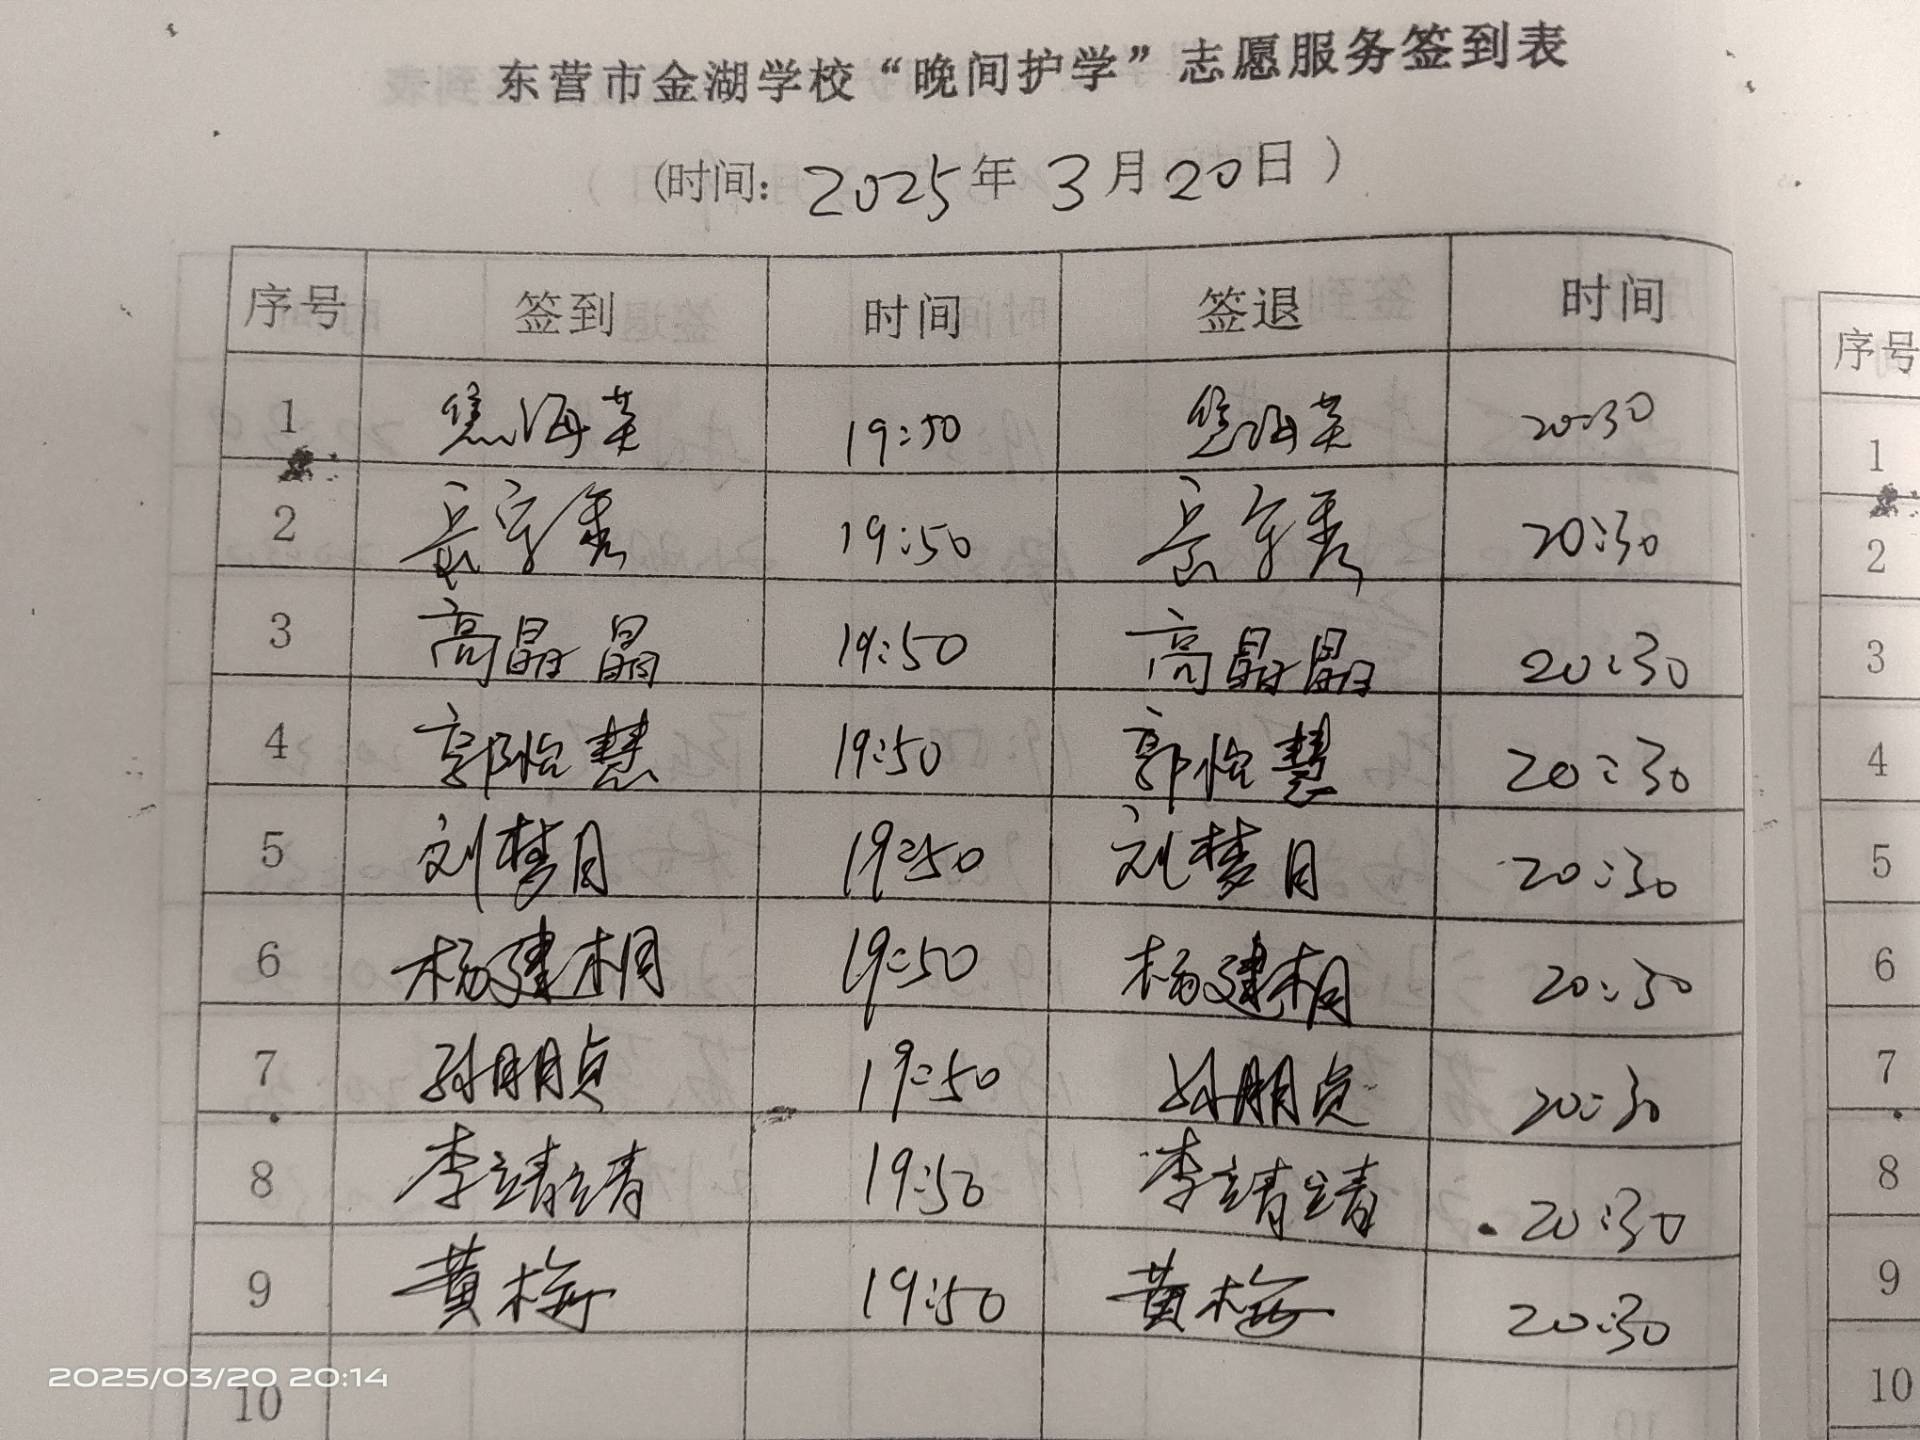 东营市金湖学校“晚间护学”志愿服务签到表
(时间: 2025年 3月20日)
序号 签到 时间 签退 时间
1 焦海英 19:50 焦海英 20:30
2 19:50 20:30
3 高晶晶 19:50 高晶晶 20:30
4 郭怡慧 19:50 郭怡慧 20:30
5 刘梦月 19:50 刘梦月 20:30
6 杨建桐 19:50 杨建桐 20:30
7 孙朋贞 19:50 孙朋贞 20:30
8 李靖靖 19:50 李靖靖 20:30
9 黄梅 19:50 黄梅 20:30
10
序号
1
2
3
4
5
6
7
8
9
10
2025/03/20 20:14